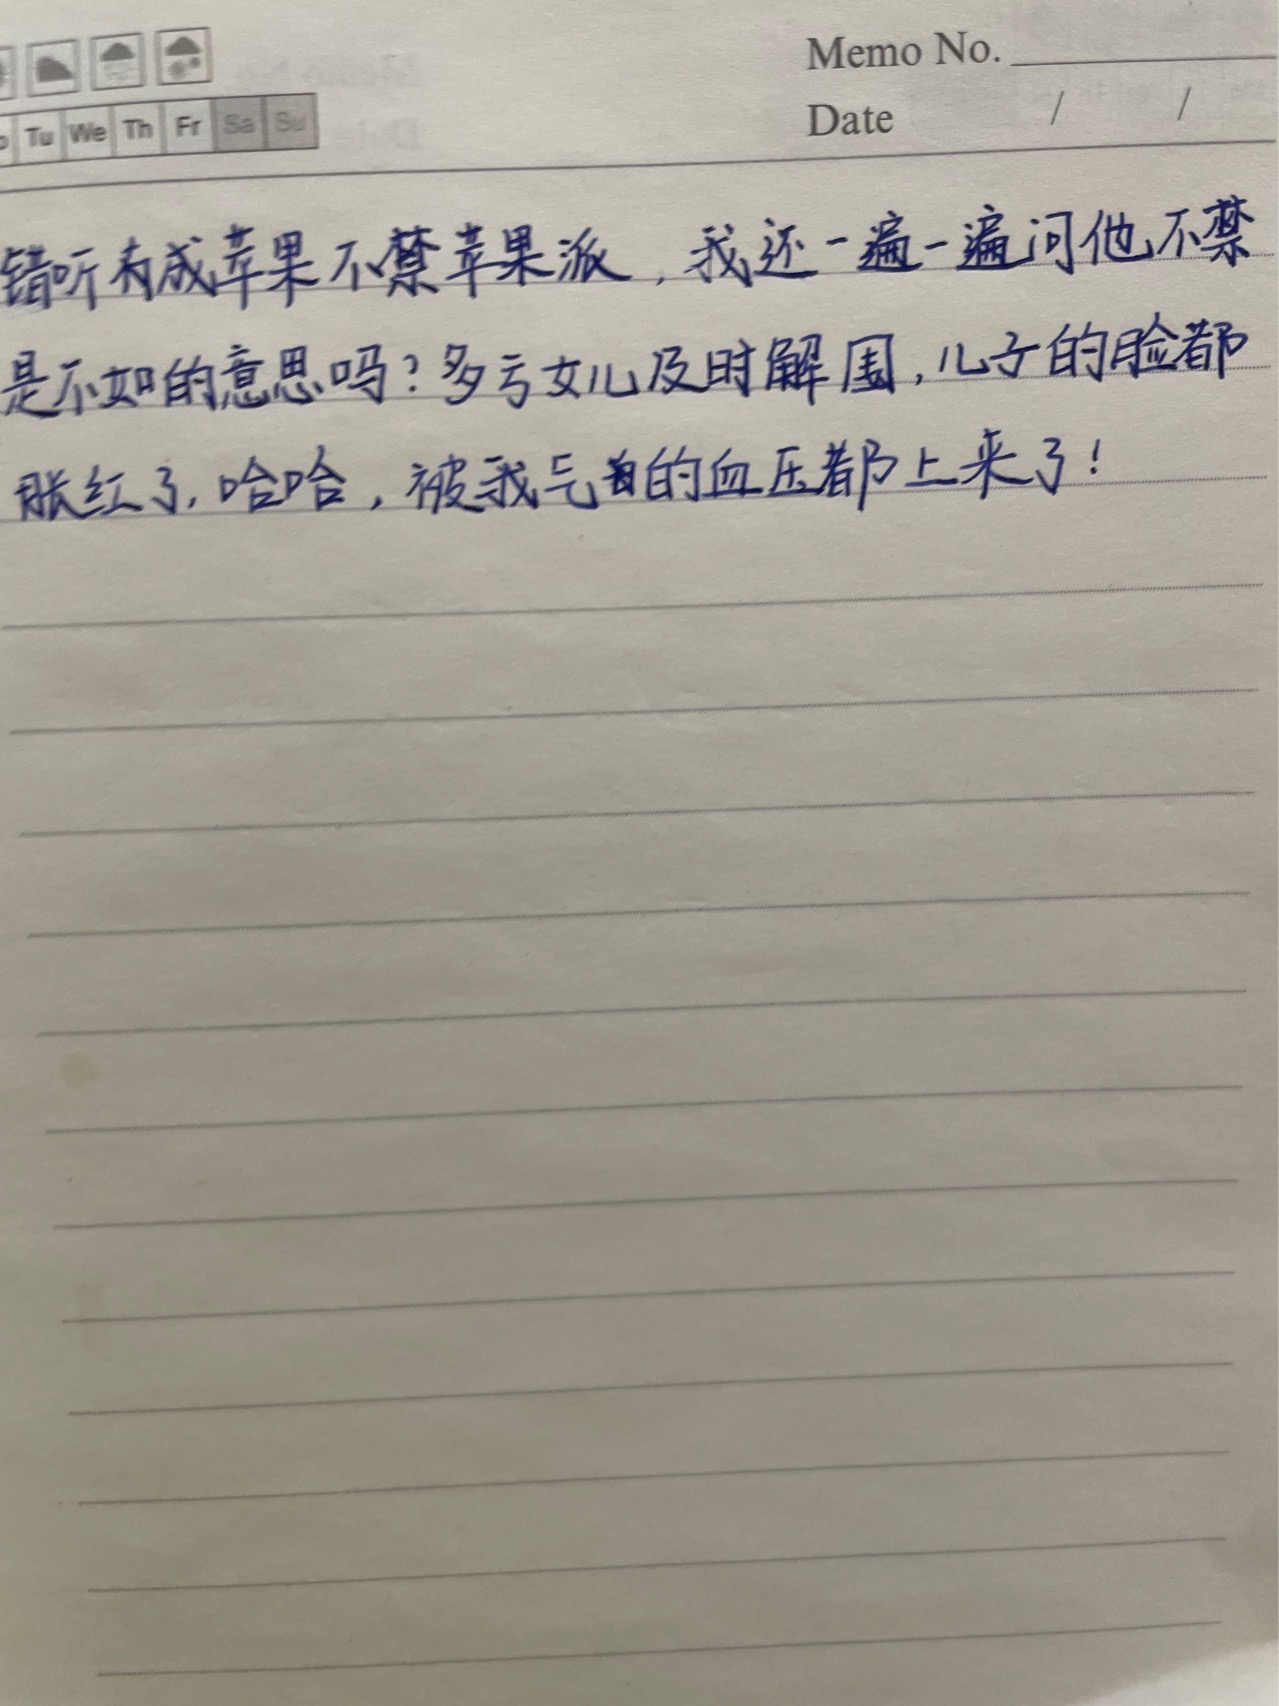 Memo No.
Tu We Th Fr Sa Su
Date / /
错听成苹果不禁苹果派，我还一遍一遍问他不禁
是不如的意思吗？多亏女儿及时解围，儿子的脸都
胀红了，哈哈，被我气的血压都上来了！